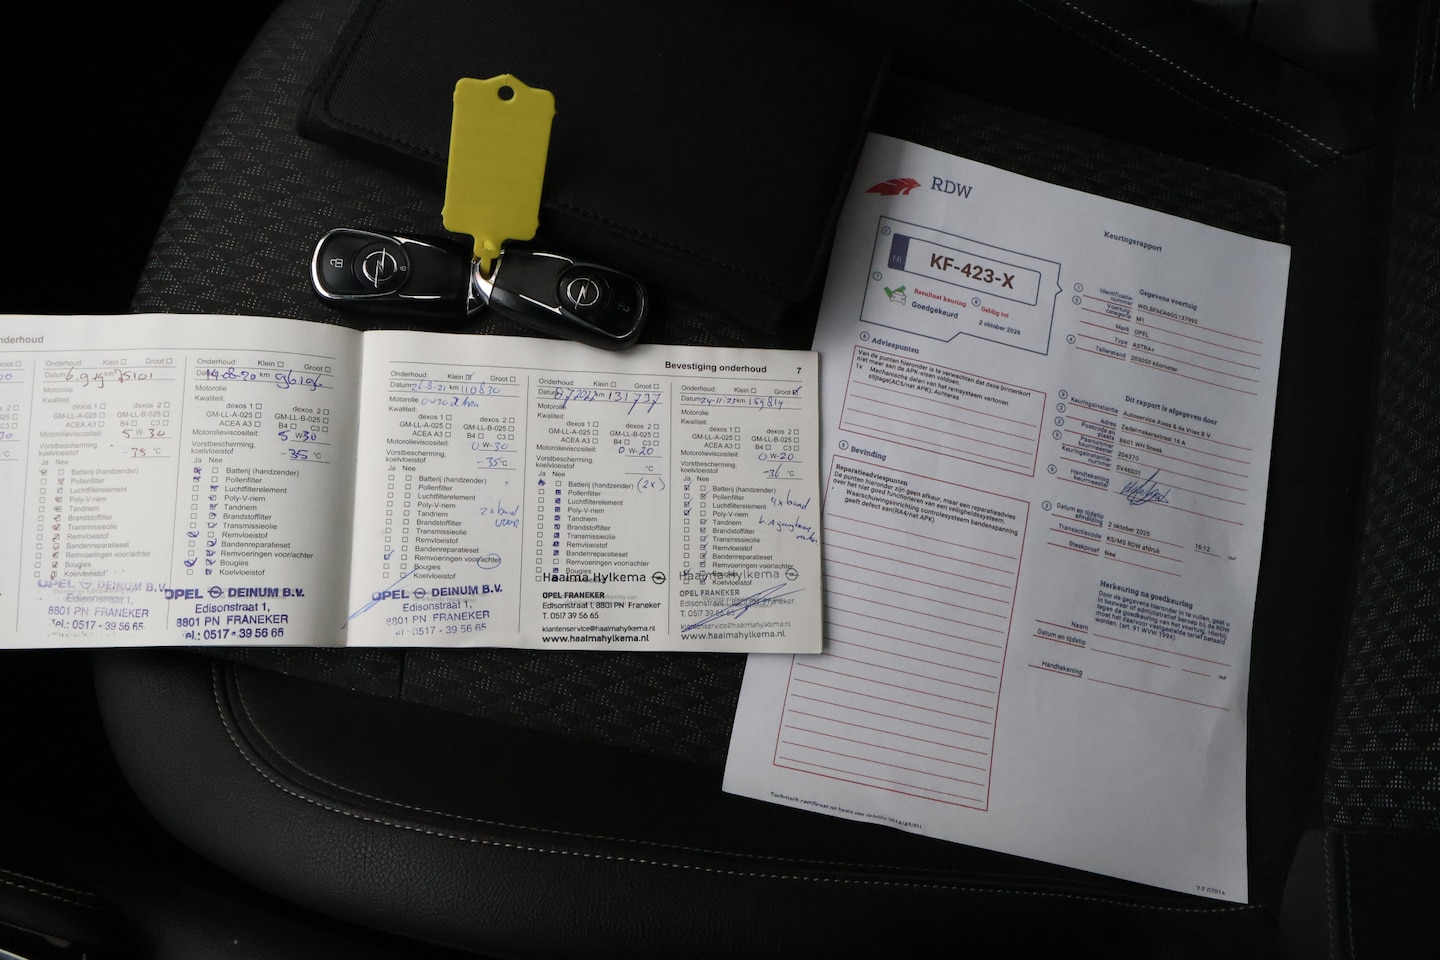 nderhoud
Onderhoud: Klein Groot
Datum 6.9.19 km 75101
Motorolie
Kwaliteit:
dexos 1 dexos 2
GM-LL-A-025 GM-LL-B-025
ACEA A3 B4 C3
Motorolieviscositeit: 5 W 30
Vorstbescherming
koelvloeistof -35 °C
Ja Nee
Batterij (handzender)
Pollenfilter
Luchtfilterelement
Poly-V-riem
Tandriem
Brandstoffilter
Transmissieolie
Remvloeistof
Bandenreparatieset
Remvoeringen voor/achter
Bougies
Koelvloeistof
OPEL DEINUM B.V.
Edisonstraat 1,
8801 PN FRANEKER
Tel.: 0517 - 39 56 65
Onderhoud: Klein Groot
Datum 14-08-20 km 96196
Motorolie
Kwaliteit:
dexos 1 dexos 2
GM-LL-A-025 GM-LL-B-025
ACEA A3 B4 C3
Motorolieviscositeit: 5 W30
Vorstbescherming
koelvloeistof -35 °C
Ja Nee
Batterij (handzender)
Pollenfilter
Luchtfilterelement
Poly-V-riem
Tandriem
Brandstoffilter
Transmissieolie
Remvloeistof
Bandenreparatieset
Remvoeringen voor/achter
Bougies
Koelvloeistof
OPEL DEINUM B.V.
Edisonstraat 1,
8801 PN FRANEKER
Tel.: 0517 - 39 56 65
Bevestiging onderhoud 7
Onderhoud: Klein Groot
Datum 26-8-21 km 110830
Motorolie
Kwaliteit:
dexos 1 dexos 2
GM-LL-A-025 GM-LL-B-025
ACEA A3 B4 C3
Motorolieviscositeit: 0 W-30
Vorstbescherming
koelvloeistof -35 °C
Ja Nee
Batterij (handzender)
Pollenfilter
Luchtfilterelement
Poly-V-riem
Tandriem 2x band
Brandstoffilter voor
Transmissieolie
Remvloeistof
Bandenreparatieset
Remvoeringen voor/achter
Bougies
Koelvloeistof
OPEL DEINUM B.V.
Edisonstraat 1,
8801 PN FRANEKER
0517 - 39 56 65
Onderhoud: Klein Groot
Datum km 131737
Motorolie
Kwaliteit:
dexos 1 dexos 2
GM-LL-A-025 GM-LL-B-025
ACEA A3 B4 C3
Motorolieviscositeit: 0 W-20
Vorstbescherming
koelvloeistof °C
Ja Nee
Batterij (handzender) (2x)
Pollenfilter
Luchtfilterelement
Poly-V-riem
Tandriem
Brandstoffilter
Transmissieolie
Remvloeistof
Bandenreparatieset
Remvoeringen voor/achter
Bougies
Haaima Hylkema
OPEL FRANEKER
Edisonstraat 1, 8801 PN Franeker
T. 0517 39 56 65
klantenservice@haaimahylkema.nl
www.haaimahylkema.nl
Onderhoud: Klein Groot
Datum 24-11-23 km 159814
Motorolie
Kwaliteit:
dexos 1 dexos 2
GM-LL-A-025 GM-LL-B-025
ACEA A3 B4 C3
Motorolieviscositeit: 0 W-20
Vorstbescherming
koelvloeistof -36 °C
Ja Nee
Batterij (handzender)
Pollenfilter 4x band
Luchtfilterelement
Poly-V-riem
Tandriem
Brandstoffilter
Transmissieolie
Remvloeistof
Bandenreparatieset
Remvoeringen voor/achter
Bougies
Koelvloeistof
Haaima Hylkema
OPEL FRANEKER
Edisonstraat 1, 8801 PN Franeker
T. 0517 39 56 65
klantenservice@haaimahylkema.nl
www.haaimahylkema.nl
RDW
Keuringsrapport
NL KF-423-X
Resultaat keuring
Goedgekeurd
Geldig tot
2 oktober 2026
Adviespunten
Van de punten hieronder is te verwachten dat deze binnenkort
niet meer aan de APK-eisen voldoen.
1x Mechanische delen van het remsysteem vertonen
slijtage(AC5/net APK); Achteras
Bevinding
Reparatieadviespunten
De punten hieronder zijn geen afkeur, maar een reparatieadvies
over het niet goed functioneren van een veiligheidssysteem.
Waarschuwingsinrichting controlesysteem bandenspanning
geeft defect aan(RAA/net APK)
Gegevens voertuig
Identificatienummer W0LBE6EA6GG137992
Voertuigcategorie M1
Merk OPEL
Type ASTRA+
Tellerstand 203050 kilometer
Dit rapport is afgegeven door
Keuringsinstantie Autoservice Aissa & de Vries B.V.
Adres Zadelmakersstraat 16 A
Postcode en plaats 8601 WN Sneek
Pasnummer keurmeester 204370
Keuringsinstantienummer SV46501
Handtekening keurmeester
Datum en tijdstip afmelding 2 oktober 2025 16:12 uur
Transactiecode KS/MS RDW afdruk
Steekproef Nee
Herkeuring na goedkeuring
Door de gegevens hieronder in te vullen, gaat u
in bezwaar of administratief beroep bij de RDW
tegen de goedkeuring van het voertuig. Hierbij
moet het daarvoor vastgestelde tarief betaald
worden. (art. 91 WVW 1994)
Naam
Datum en tijdstip uur
Handtekening
Technisch certificaat op basis van richtlijn 2014/45/EU